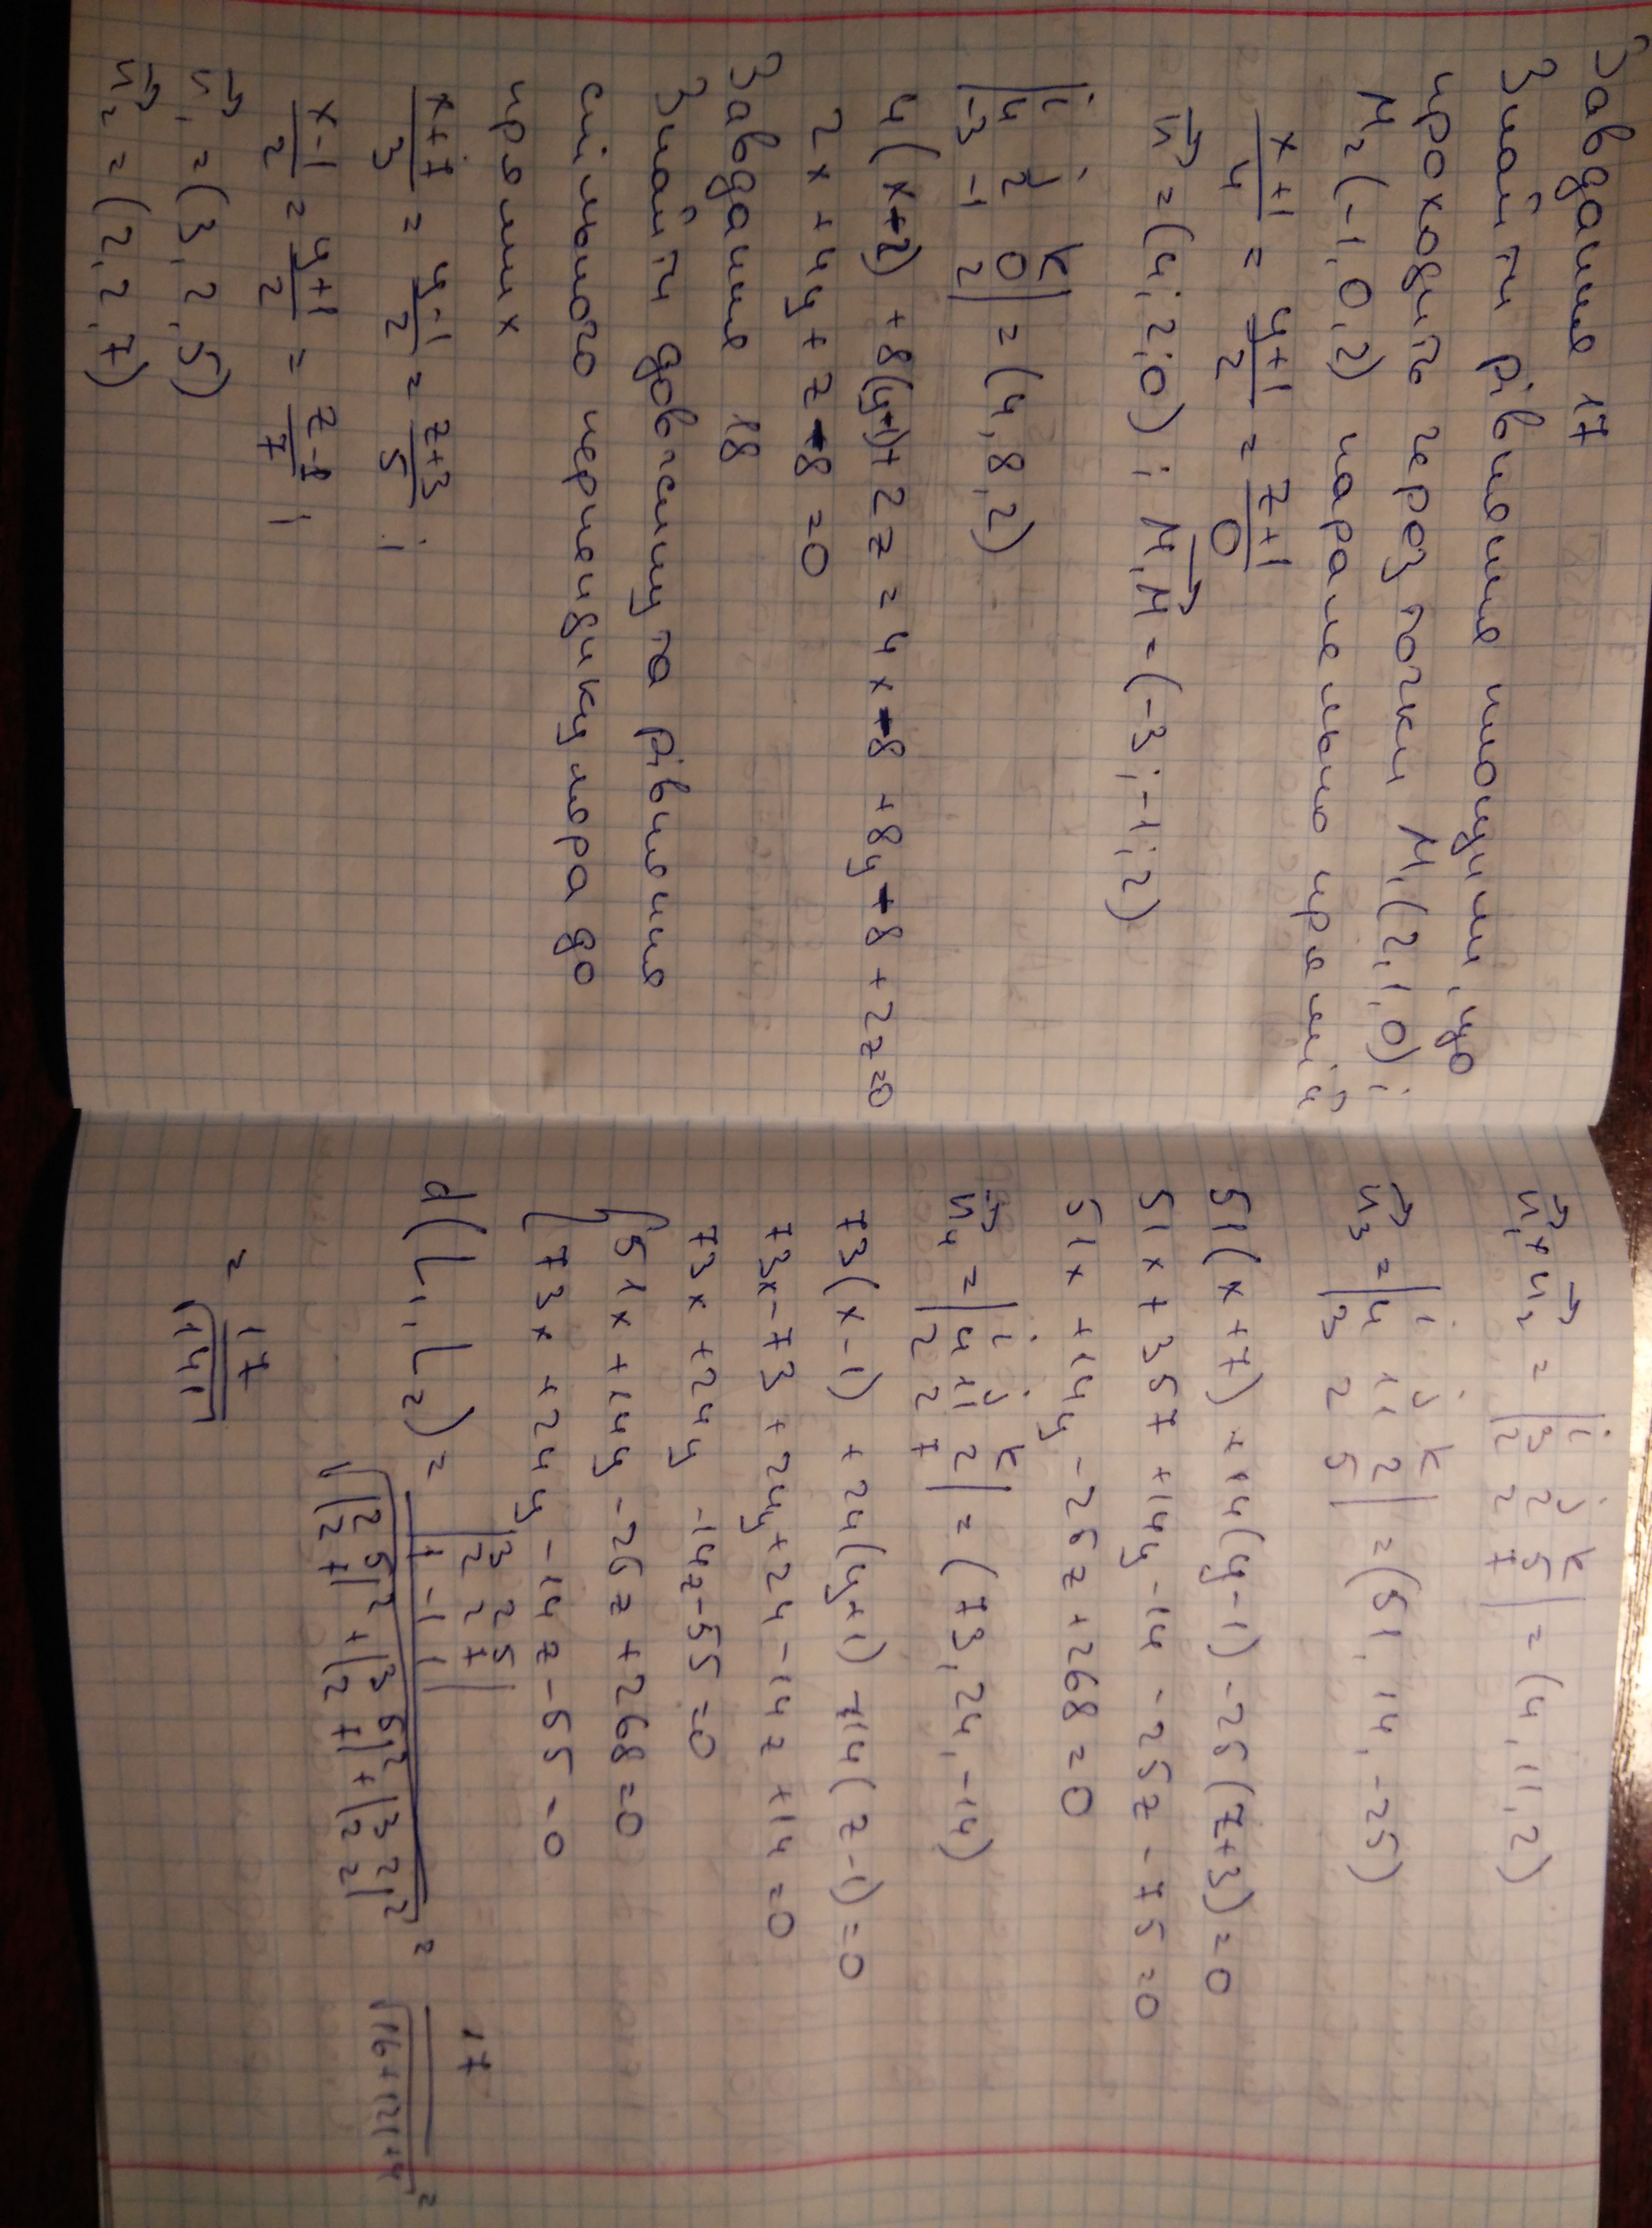 Завдання 17
Знайти рівняння площини, що
проходить через точки M₁(2,1,0);
M₂(-1,0,2) паралельно прямій
(x+1)/4 = (y+1)/2 = (z+1)/0
n⃗ = (4;2;0) ; M₁M⃗ = (-3;-1;2)
|i j k|
|4 2 0|
|-3 -1 2| = (4,8,2)
4(x+2) + 8(y+1) + 2z = 4x-8 + 8y-8 + 2z=0
2x + 4y + z - 8 = 0
Завдання 18
Знайти довжину та рівняння
спільного перпендикуляра до
прямих
(x+7)/3 = (y-1)/2 = (z+3)/5 ;
(x-1)/2 = (y+1)/2 = (z-1)/7 ;
n⃗₁ = (3,2,5)
n⃗₂ = (2,2,7)
n⃗₁ × n⃗₂ = |i j k|
|3 2 5|
|2 2 7| = (4,11,2)
n⃗₃ = |i j k|
|4 11 2|
|3 2 5| = (51, 14, -25)
51(x+7) + 14(y-1) - 25(z+3) = 0
51x + 357 + 14y - 14 - 25z - 75 = 0
51x + 14y - 26z + 268 = 0
n⃗₄ = |i j k|
|4 11 2|
|2 2 7| = (73, 24, -14)
73(x-1) + 24(y+1) - 14(z-1) = 0
73x - 73 + 24y + 24 - 14z + 14 = 0
73x + 24y - 14z - 55 = 0
{51x + 14y - 26z + 268 = 0
{73x + 24y - 14z - 55 - 0
d(L₁, L₂) = |3 2 5|
|2 2 7|
|1 -1 1| / √(|2 5; 2 7|² + |3 5; 2 7|² + |3 2; 2 2|²) = 17/√(16+121+4) =
= 17/√141